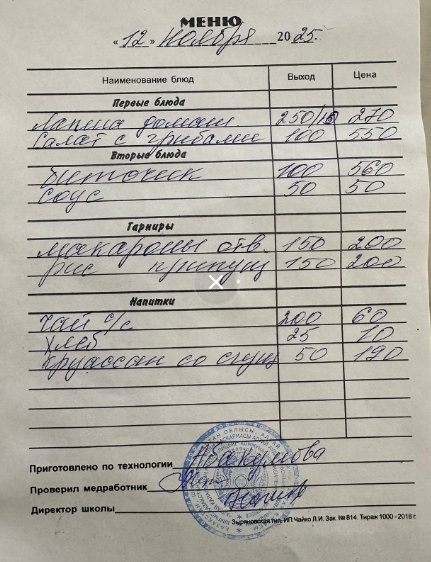 МЕНЮ
«12» Ноября 2025.
Наименование блюд Выход Цена
Первые блюда
Лапша домаш 250/10 270
Салат с грибами 100 550
Вторые блюда
Биточек 100 560
Соус 50 50
Гарниры
Макароны отв. 150 200
рис припущ 150 200
Напитки
Чай с/с 200 60
Хлеб 25 10
Круассан со сгущ 50 190
Приготовлено по технологии Абакумова
Проверил медработник
Директор школы
Зыряновская тип. ИП Чайко Л.И. Зак. №814. Тираж 1000 - 2018 г.